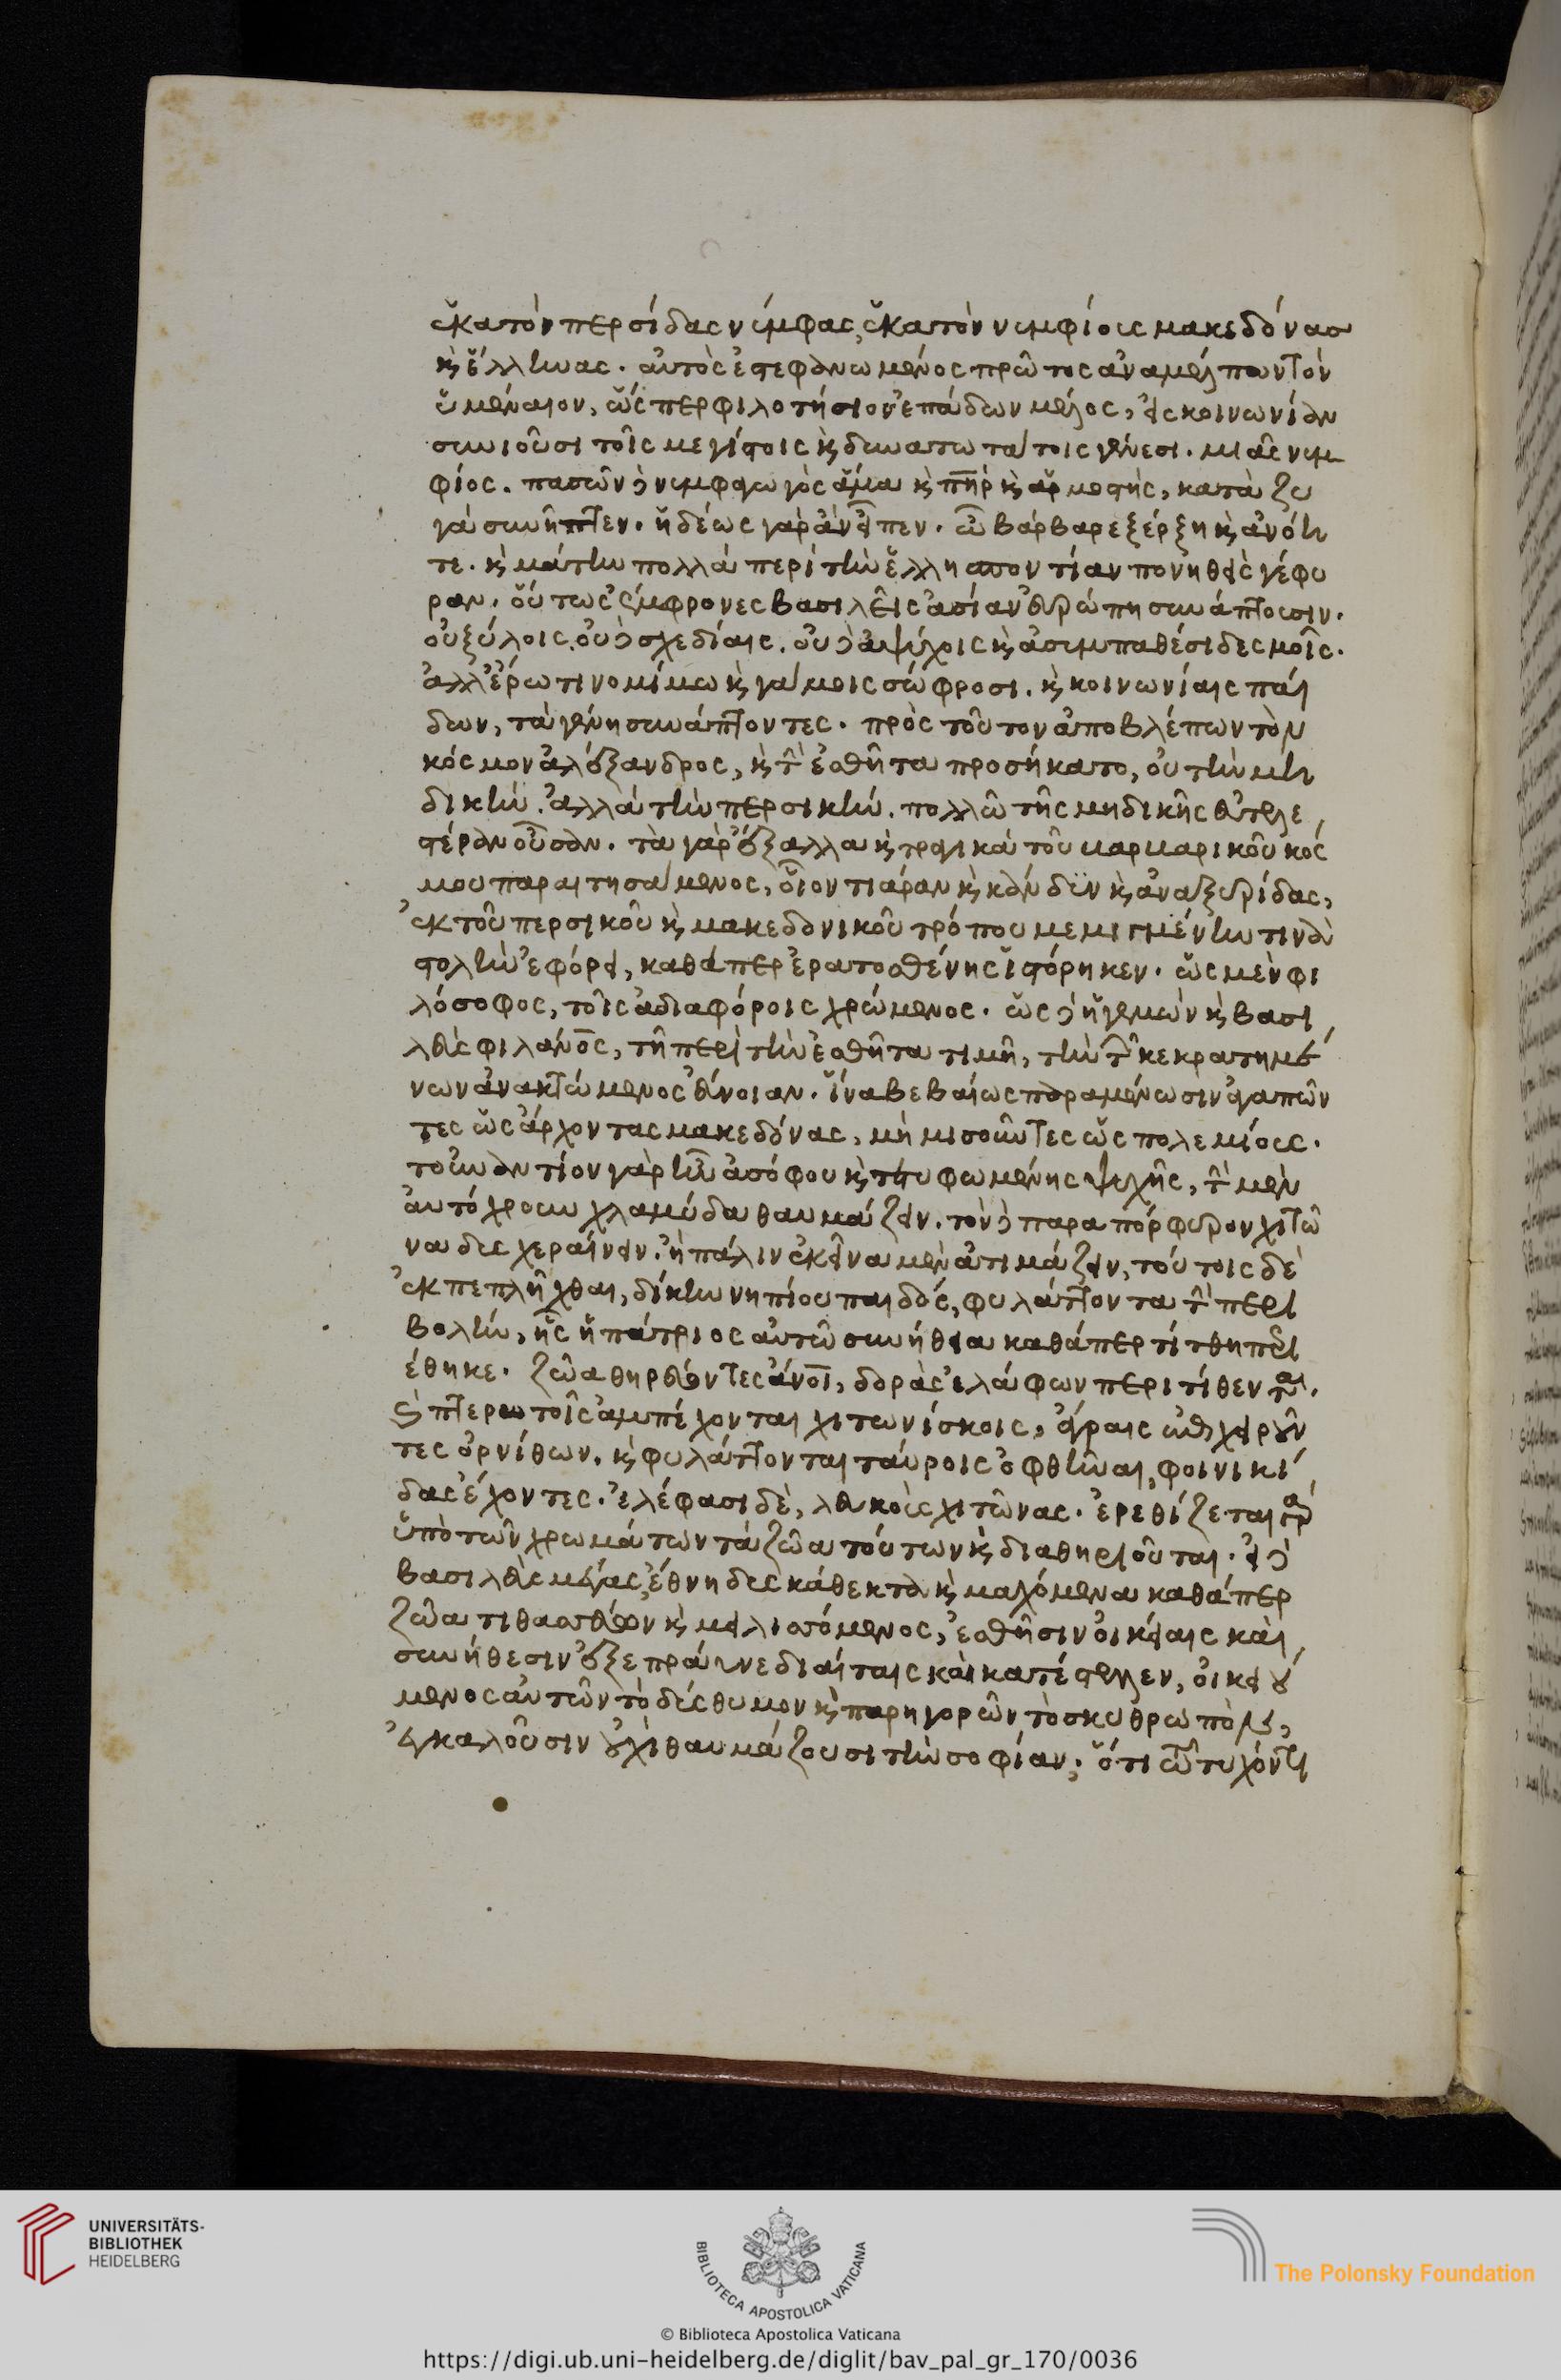 ἑκατὸν περσίδας νύμφας, ἑκατὸν νυμφίους μακεδόνας
κ̀ ἕλληνας. αὐτὸς ἐστεφανωμένος πρῶτος ἀναμέλπων τὸν
ὑμέναιον, ὥσπερ φιλοτήσιον ἐπάδων μέλος, εἰς κοινωνίαν
συνιοῦσι τοῖς μεγίστοις κ̀ δυνατωτάτοις γένεσι. μιᾶς νυμ
φίος. πασῶν δὲ νυμφαγωγὸς ἅμα κ̀ πη̅ρ κ̀ ἁρμοστὴς, κατὰ ζυ
γὰ συνῆπτεν. ἡδέως γὰρ ἂν εἶπεν. ὦ βάρβαρε ξέρξη κ̀ ἀνόη
τε. κ̀ μάτην πολλὰ περὶ τὴν ἑλλησποντίαν πονηθεὶς γέφυ
ραν. οὕτως ἔμφρονες βασιλεῖς ἀσίαν εὐρώπῃ συνάπτουσιν.
οὐ ξύλοις. οὐδὲ σχεδίαις. οὐδὲ ἀψύχοις κ̀ ἀσυμπαθέσι δεσμοῖς.
ἀλλ' ἔρωτι νομίμω κ̀ γάμοις σώφροσι. κ̀ κοινωνίαις παί
δων, τὰ γένη συνάπτοντες. πρὸς τοῦτον ἀποβλέπων τὸν
κόσμον ἀλέξανδρος, κ̀ τὴν ἐσθῆτα προσήκατο, οὐ τὴν μη
δικὴν. ἀλλὰ τὴν περσικὴν. πολλῶ τῆς μηδικῆς εὐτελε
στέραν οὖσαν. τὰ γὰρ ἔξαλλα κ̀ τραγικὰ τοῦ βαρβαρικοῦ κόσ
μου παραιτησάμενος, οἷον τιάραν κ̀ κάνδυν κ̀ ἀναξυρίδας,
ἐκ τοῦ περσικοῦ κ̀ μακεδονικοῦ τρόπου μεμιγμένην τινὰ
στολὴν ἐφόρει, καθάπερ ἐρατοσθένης ἱστόρηκεν. ὡς μὲν φι
λόσοφος, τοῖς ἀδιαφόροις χρώμενος. ὡς δὲ ἡγεμὼν κ̀ βασι
λεὺς φιλάνο̅ς, τῆ περὶ τὴν ἐσθῆτα τιμῆ, τὴν τῶν κεκρατημέ
νων ἀνακτώμενος εὔνοιαν. ἵνα βεβαίως παραμένωσιν ἀγαπῶν
τες ὡς ἄρχοντας μακεδόνας, μὴ μισοῦντες ὡς πολεμίους.
τοὐναντίον γὰρ ἦν ἀσόφου κ̀ τετυφωμένης ψυχῆς, τὴν μὲν
αὐτόχρουν χλαμύδα θαυμάζειν. τὸν δὲ παραπόρφυρον χιτῶ
να δυσχεραίνειν. ἢ πάλιν ἐκεῖνα μὲν ἀτιμάζειν, τούτοις δὲ
ἐκπεπλῆχθαι, δίκην νηπίου παιδός, φυλάττοντα τὴν περι
βολὴν, ἣν ἡ πάτριος αὐτῶ συνήθεια καθάπερ τίτθη περι
έθηκε. ζῶα θηρεύοντες ἄνο̅ι, δορὰς ἐλάφων περιτίθενται.
κ̀ πτερωτοῖς ἀμπέχονται χιτωνίσκοις, ἄγραις ἐπιχειροῦν
τες ὀρνίθων. κ̀ φυλάττονται ταύροις ὀφθῆναι, φοινικί
δας ἔχοντες. ἐλέφασι δὲ, λευκοὺς χιτῶνας. ἐρεθίζεται γὰρ
ὑπὸ τῶν χρωμάτων τὰ ζῶα τούτων κ̀ διαθηριοῦται. εἰ δὲ
βασιλεὺς μέγας, ἔθνη δυσκάθεκτα κ̀ μαχόμενα καθάπερ
ζῶα τιθασσεύων κ̀ μειλισσόμενος, ἐσθῆσιν οἰκείαις καὶ
συνήθεσιν ἐξεπράυνε διαίταις καὶ κατέστελλεν, οἰκειού
μενος αὐτῶν τὸ δύσθυμον κ̀ παρηγορῶν τὸ σκυθρωπὸν,
ἐγκαλοῦσιν οὐχὶ θαυμάζουσι τὴν σοφίαν; ὅτι τῶ τυχόντι
UNIVERSITÄTS-
BIBLIOTHEK
HEIDELBERG
BIBLIOTECA APOSTOLICA VATICANA
The Polonsky Foundation
© Biblioteca Apostolica Vaticana
https://digi.ub.uni-heidelberg.de/diglit/bav_pal_gr_170/0036